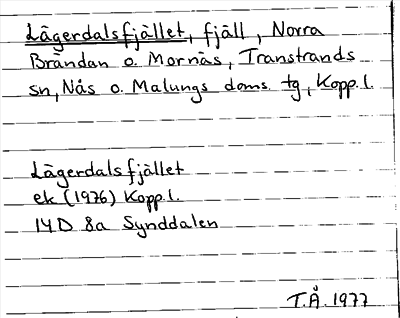 Lägerdalsfjället, fjäll, Norra
Brändan o. Mornäs, Transtrands
sn, Nås o. Malungs doms. tg, Kopp. l.
Lägerdalsfjället
ek (1976) Kopp. l.
14D 8a Synddalen
T.Å. 1977